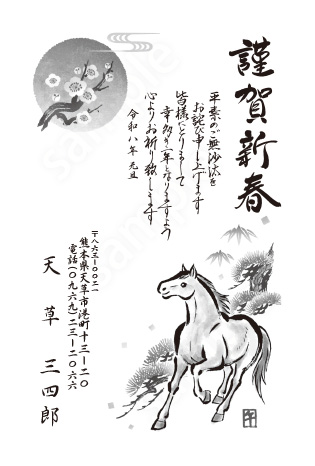 謹賀新春
平素のご無沙汰を
お詫び申し上げます
皆様にとりまして
幸多き一年になりますよう
心よりお祈り致します
令和八年 元旦
〒八六三-〇〇二一
熊本県天草市港町十三-二〇
電話(〇九六九)二三-二〇六六
天草 三四郎
sample